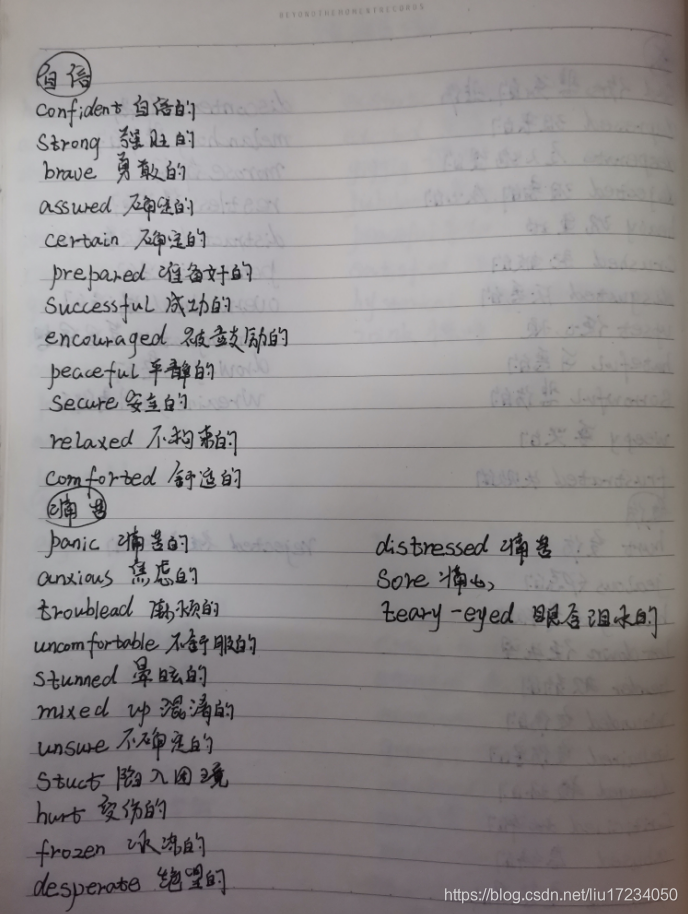 BEYONDTHEMOMENTRECORDS
自信
confident 自信的
strong 强壮的
brave 勇敢的
assured 确定的
certain 确定的
prepared 准备好的
successful 成功的
encouraged 被鼓励的
peaceful 平静的
secure 安全的
relaxed 不拘束的
comforted 舒适的
痛苦
panic 痛苦的
anxious 焦虑的
troublead 麻烦的
uncomfortable 不舒服的
stunned 晕眩的
mixed up 混淆的
unsure 不确定的
stuct 陷入困境
hurt 受伤的
frozen 冰冻的
desperate 绝望的
distressed 痛苦
sore 痛心
teary-eyed 眼含泪水的
https://blog.csdn.net/liu17234050